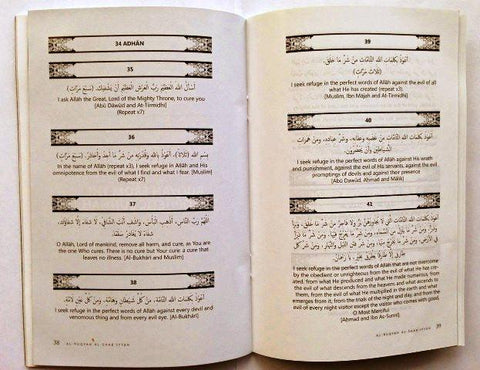 34 ADHĀN
35
أَسْأَلُ اللهَ الْعَظِيمَ رَبَّ الْعَرْشِ الْعَظِيمِ أَنْ يَشْفِيَكَ. (سَبْعَ مَرَّاتٍ)
I ask Allāh the Great, Lord of the Mighty Throne, to cure you
[Abū Dāwūd and At-Tirmidhi]
(Repeat x7)
36
بِسْمِ اللهِ (ثَلَاثًا)، أَعُوذُ بِاللهِ وَقُدْرَتِهِ مِنْ شَرِّ مَا أَجِدُ وَأُحَاذِرُ. (سَبْعَ مَرَّاتٍ)
In the name of Allāh (repeat x3), I seek refuge in Allāh and His
omnipotence from the evil of what I find and what I fear. [Muslim]
(Repeat x7)
37
اللَّهُمَّ رَبَّ النَّاسِ، أَذْهِبِ الْبَأْسَ، وَاشْفِ أَنْتَ الشَّافِي، لَا شِفَاءَ إِلَّا شِفَاؤُكَ،
شِفَاءً لَا يُغَادِرُ سَقَمًا.
O Allāh, Lord of mankind, remove all harm, and cure, as You are
the one Who cures. There is no cure but Your cure; a cure that
leaves no illness. [Al-Bukhāri and Muslim]
38
أَعُوذُ بِكَلِمَاتِ اللهِ التَّامَّةِ، مِنْ كُلِّ شَيْطَانٍ وَهَامَّةٍ، وَمِنْ كُلِّ عَيْنٍ لَامَّةٍ.
I seek refuge in the perfect words of Allāh against every devil and
venomous thing and from every evil eye. [Al-Bukhāri]
38
AL-RUQYAH AL-SHAR'IYYAH
39
أَعُوذُ بِكَلِمَاتِ اللهِ التَّامَّاتِ مِنْ شَرِّ مَا خَلَقَ.
(ثَلَاثَ مَرَّاتٍ)
I seek refuge in the perfect words of Allāh against the evil of all
what He has created (repeat x3).
[Muslim, Ibn Mājah and At-Tirmidhi]
40
أَعُوذُ بِكَلِمَاتِ اللهِ التَّامَّاتِ مِنْ غَضَبِهِ وَعِقَابِهِ، وَشَرِّ عِبَادِهِ، وَمِنْ هَمَزَاتِ
الشَّيَاطِينِ وَأَنْ يَحْضُرُونِ.
I seek refuge in the perfect words of Allāh against His wrath
and punishment, against the evil of His servants, against the evil
promptings of devils and against their presence
[Abū Dawūd, Ahmad and Mālik]
41
أَعُوذُ بِكَلِمَاتِ اللهِ التَّامَّاتِ الَّتِي لَا يُجَاوِزُهُنَّ بَرٌّ وَلَا فَاجِرٌ مِنْ شَرِّ مَا خَلَقَ،
I seek refuge in the perfect words of Allāh that are not overcome
by the obedient or unrighteous from the evil of what He has cre-
ated, from what He produced and what He made numerous, from
the evil of what descends from the heavens and what ascends in
them, from the evil of what He multiplied in the earth and what
emerges from it; from the trials of the night and day; and from the
evil of every night visitor except the visitor who comes with good,
O Most Merciful
[Ahmad and Ibn As-Sunni].
AL-RUQYAH AL-SHAR'IYYAH
39